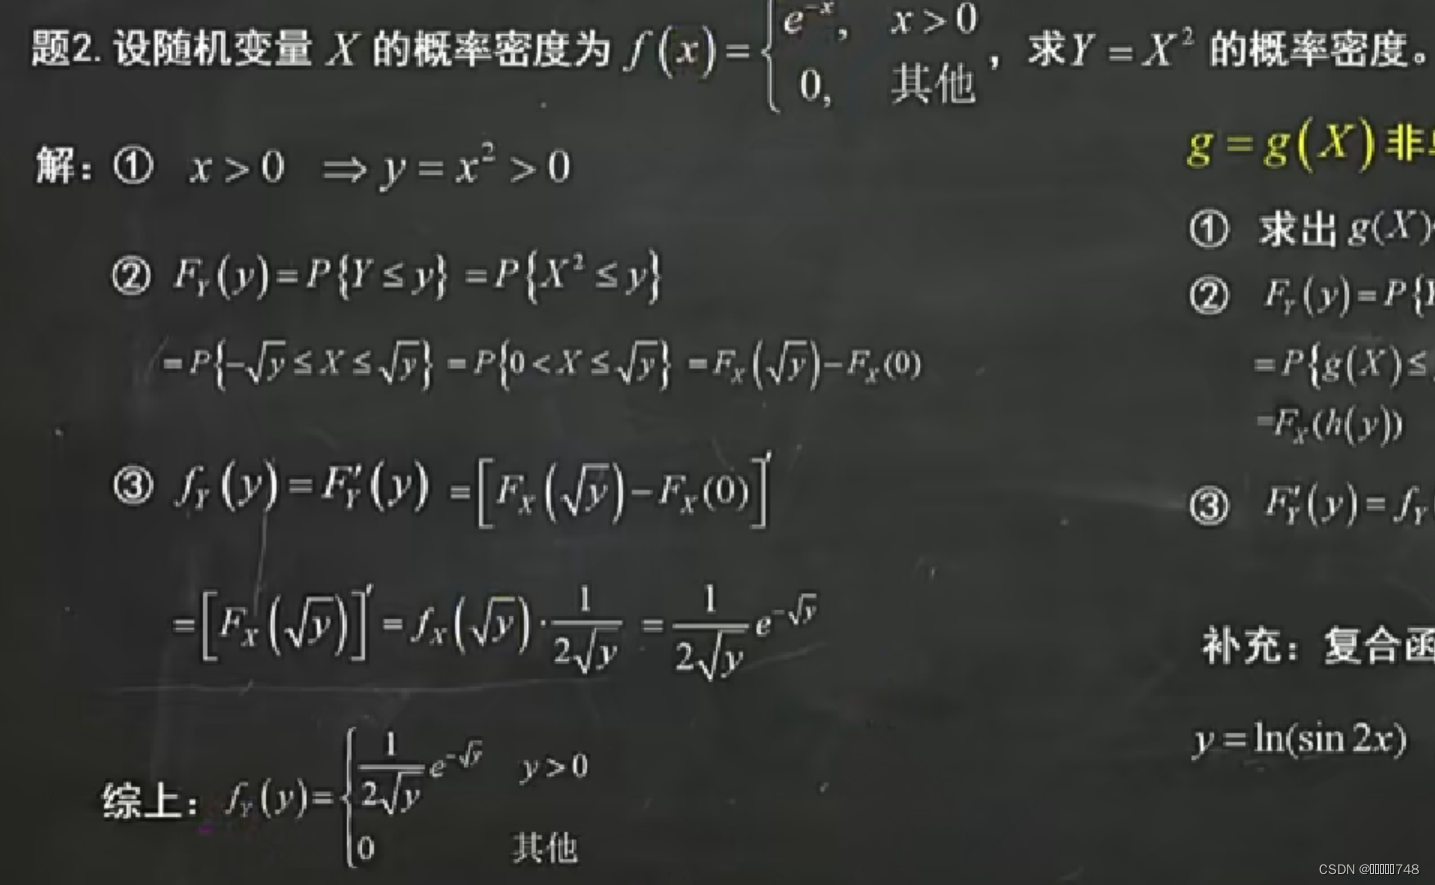 题2. 设随机变量 X 的概率密度为 f(x) = { e^{-x}, x > 0; 0, 其他 , 求Y = X² 的概率密度。
解: ① x > 0 ⇒ y = x² > 0
② F_Y(y) = P{Y ≤ y} = P{X² ≤ y}
= P{-√y ≤ X ≤ √y} = P{0 < X ≤ √y} = F_X(√y) - F_X(0)
③ f_Y(y) = F'_Y(y) = [F_X(√y) - F_X(0)]'
= [F_X(√y)]' = f_X(√y) · 1/(2√y) = 1/(2√y) e^{-√y}
综上: f_Y(y) = { 1/(2√y) e^{-√y} y > 0; 0 其他
g = g(X) 非
① 求出 g(X)
② F_Y(y) = P{
= P{g(X) ≤
= F_X(h(y))
③ F'_Y(y) = f_Y
补充: 复合函
y = ln(sin 2x)
CSDN @748